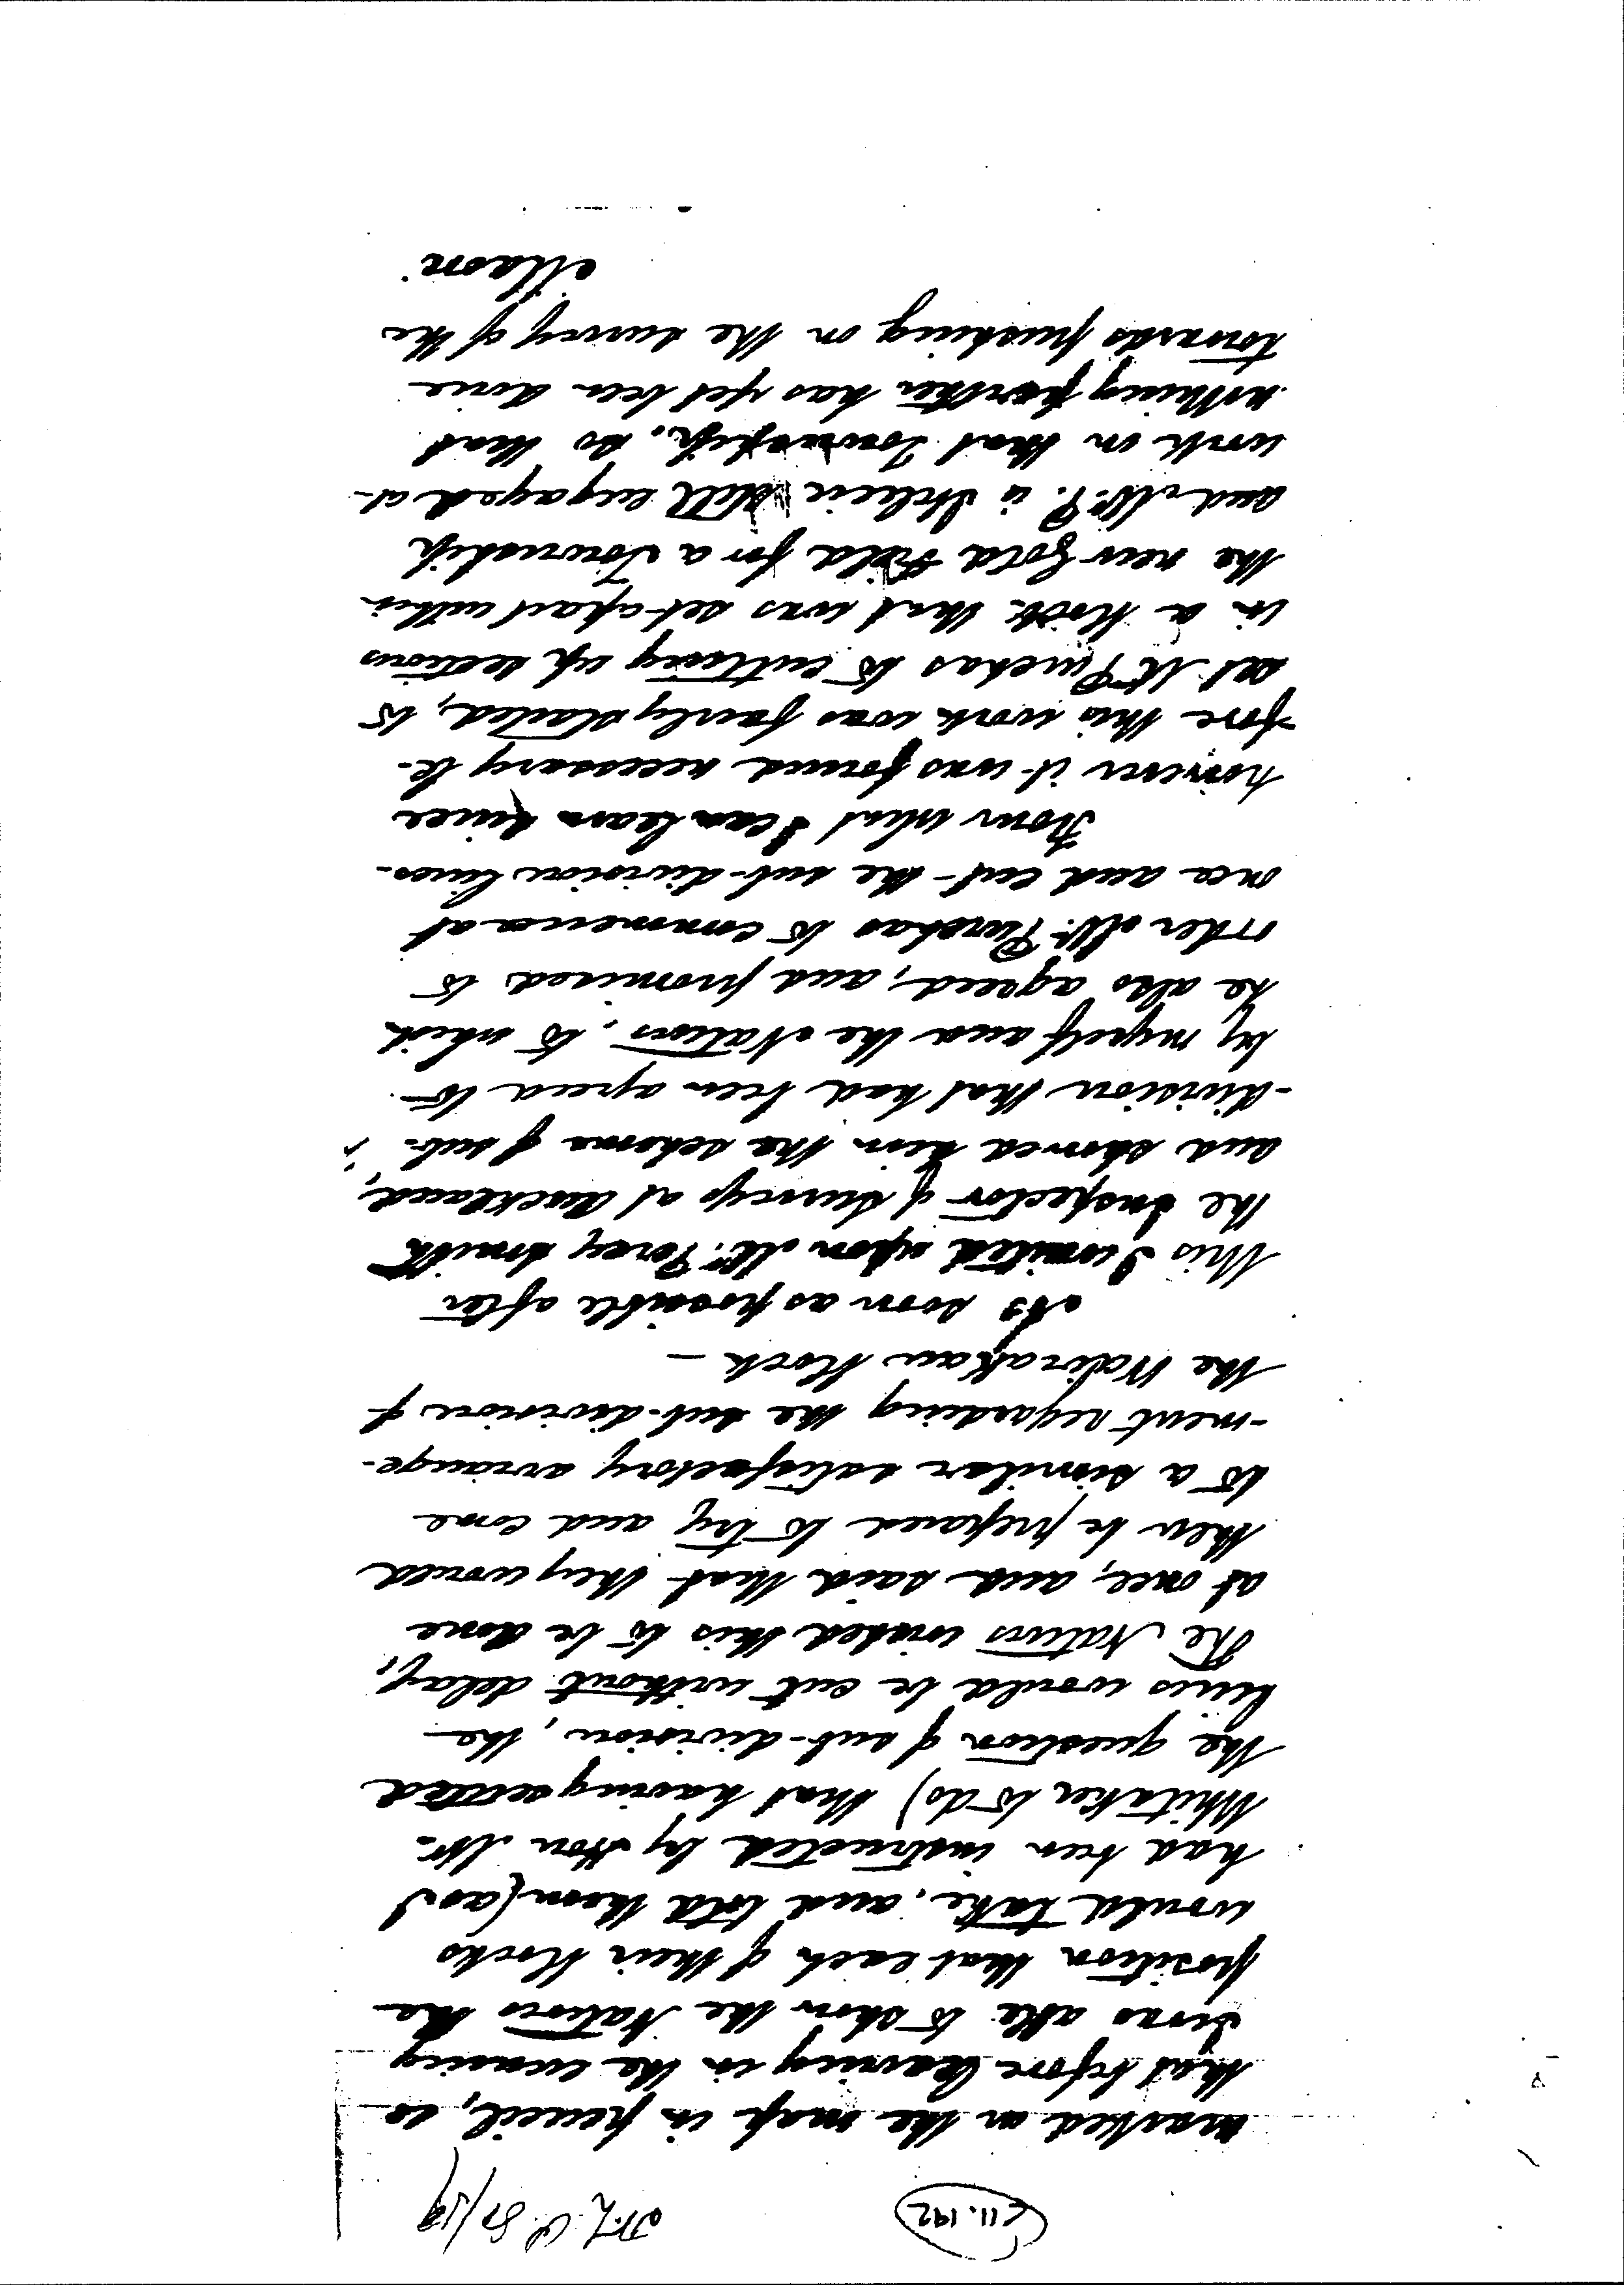 C11.192
marked on the map in pencil, so
that before leaving in the evening
I was able to show the Natives the
position that each of their blocks
would take, and told them (as I
had been instructed by Hon Mr.
Whitaker to do) that having settled
the question of sub-division, the
lines would be cut without delay;
The Natives wished this to be done
at once, and said that they would
then be prepared to try and come
to a similar satisfactory arrange-
-ment regarding the sub-division of
the Wairakau Block —
As soon as possible after
this I waited upon Mr. Percy Smith
the Inspector of Surveys at Auckland,
and showed him the scheme of sub-
-division that had been agreed to
by myself and the Natives, to which
he also agreed, and promised to
order Mr. Purchas to commence at
once and cut the sub-division lines.
From what I can learn since
however it was found necessary be-
fore this work was fairly started, to
set Mr Purchas to cutting up sections
in a block that was set apart within
the new Gold Field for a Township
and Mr. P. is still engaged at
work on that Township, so that
nothing further has yet been done
towards pushing on the survey of the
Maori